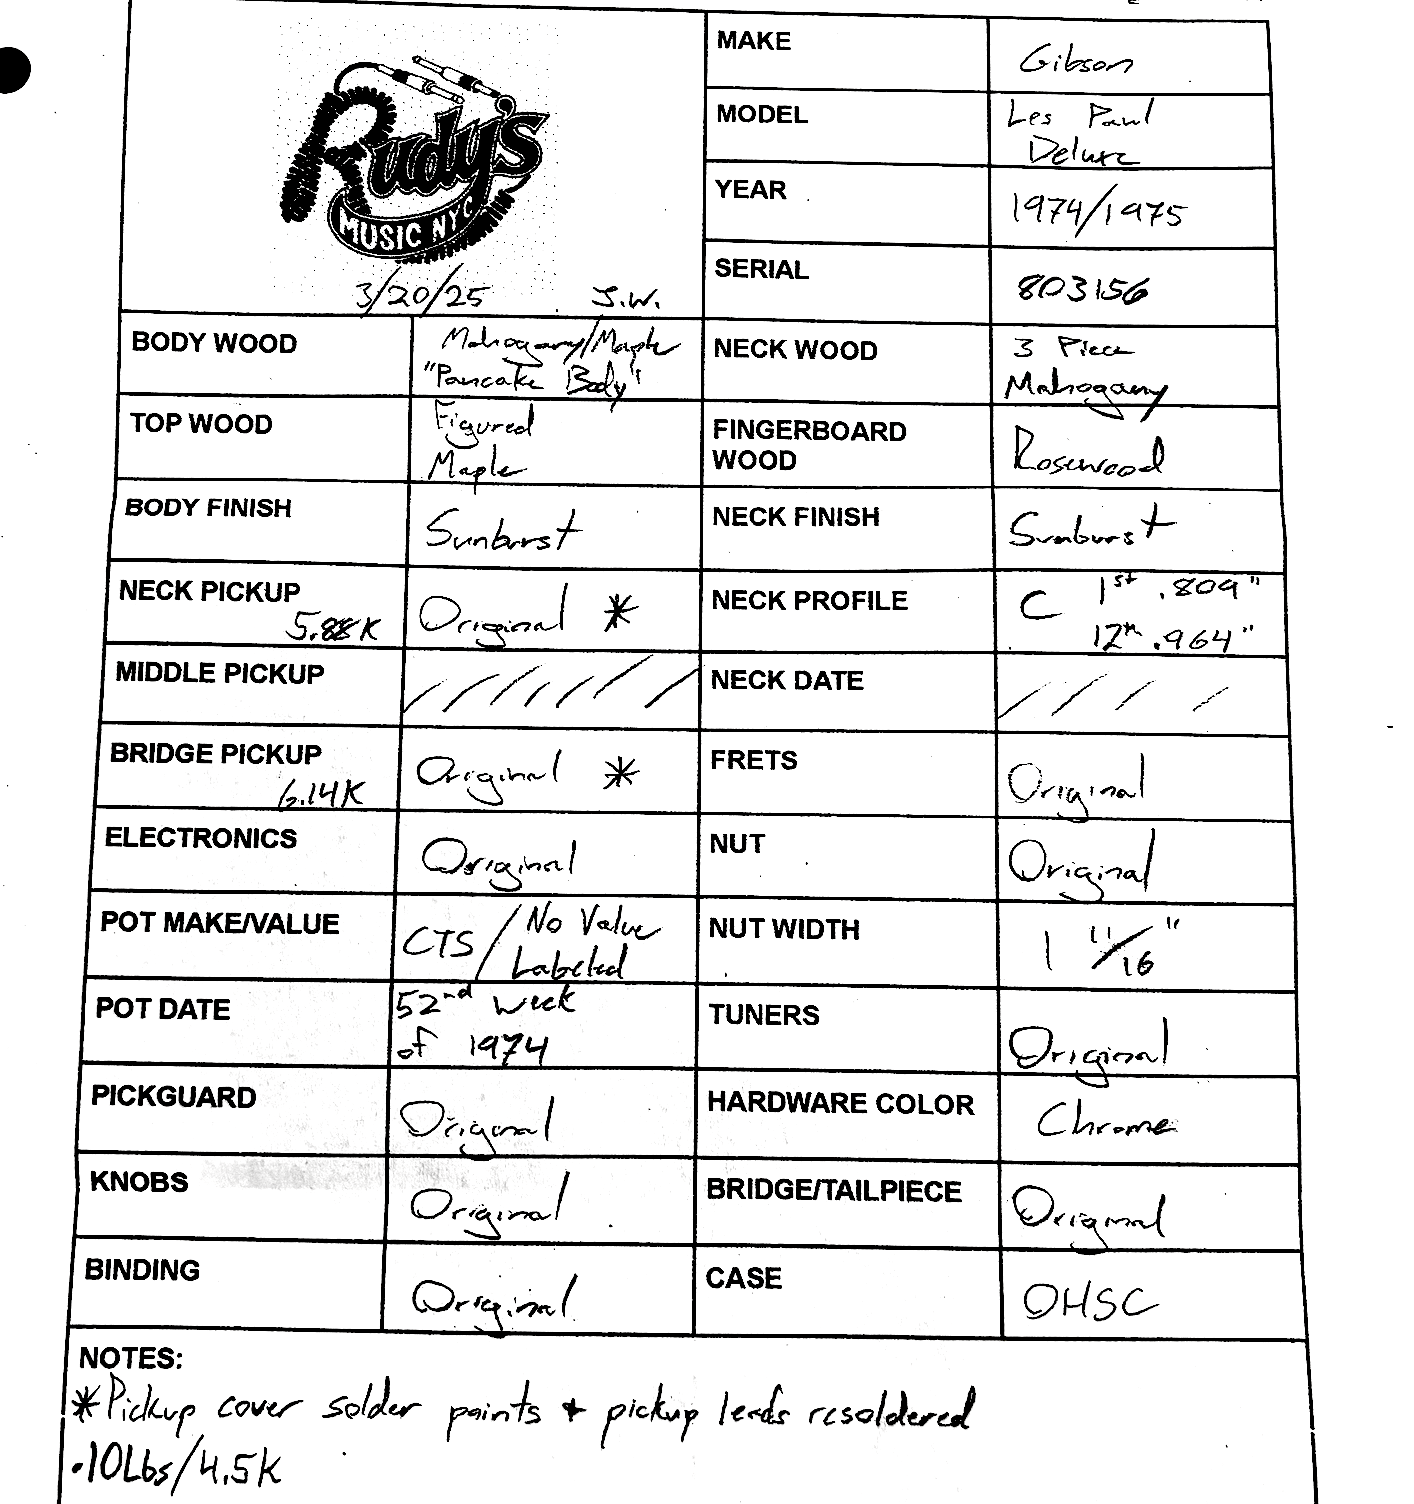 Rudy's
MUSIC NYC
3/20/25 J.W.
MAKE Gibson
MODEL Les Paul
Deluxe
YEAR 1974/1975
SERIAL 803156
BODY WOOD Mahogany/Maple
"Pancake Body"
NECK WOOD 3 Piece
Mahogany
TOP WOOD Figured
Maple
FINGERBOARD
WOOD Rosewood
BODY FINISH Sunburst
NECK FINISH Sunburst
NECK PICKUP
5.88K Original *
NECK PROFILE C 1st .809"
12th .964"
MIDDLE PICKUP
NECK DATE
BRIDGE PICKUP
6.14K Original *
FRETS Original
ELECTRONICS Original
NUT Original
POT MAKE/VALUE CTS / No Value
Labeled
NUT WIDTH 1 11/16"
POT DATE 52nd week
of 1974
TUNERS Original
PICKGUARD Original
HARDWARE COLOR Chrome
KNOBS Original
BRIDGE/TAILPIECE Original
BINDING Original
CASE OHSC
NOTES:
*Pickup cover solder points + pickup leads resoldered
.10Lbs/4.5K